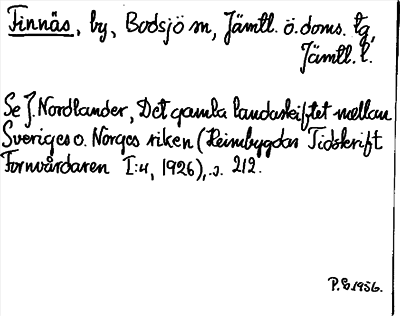 Finnäs, by, Bodsjö sn, Jämtl. ö. doms. tg,
Jämtl. l.
Se J. Nordlander, Det gamla landaskiftet mellan
Sveriges o. Norges riken (Heimbygdas Tidskrift
Fornvårdaren I:4, 1926), s. 212.
P.E. 1956.